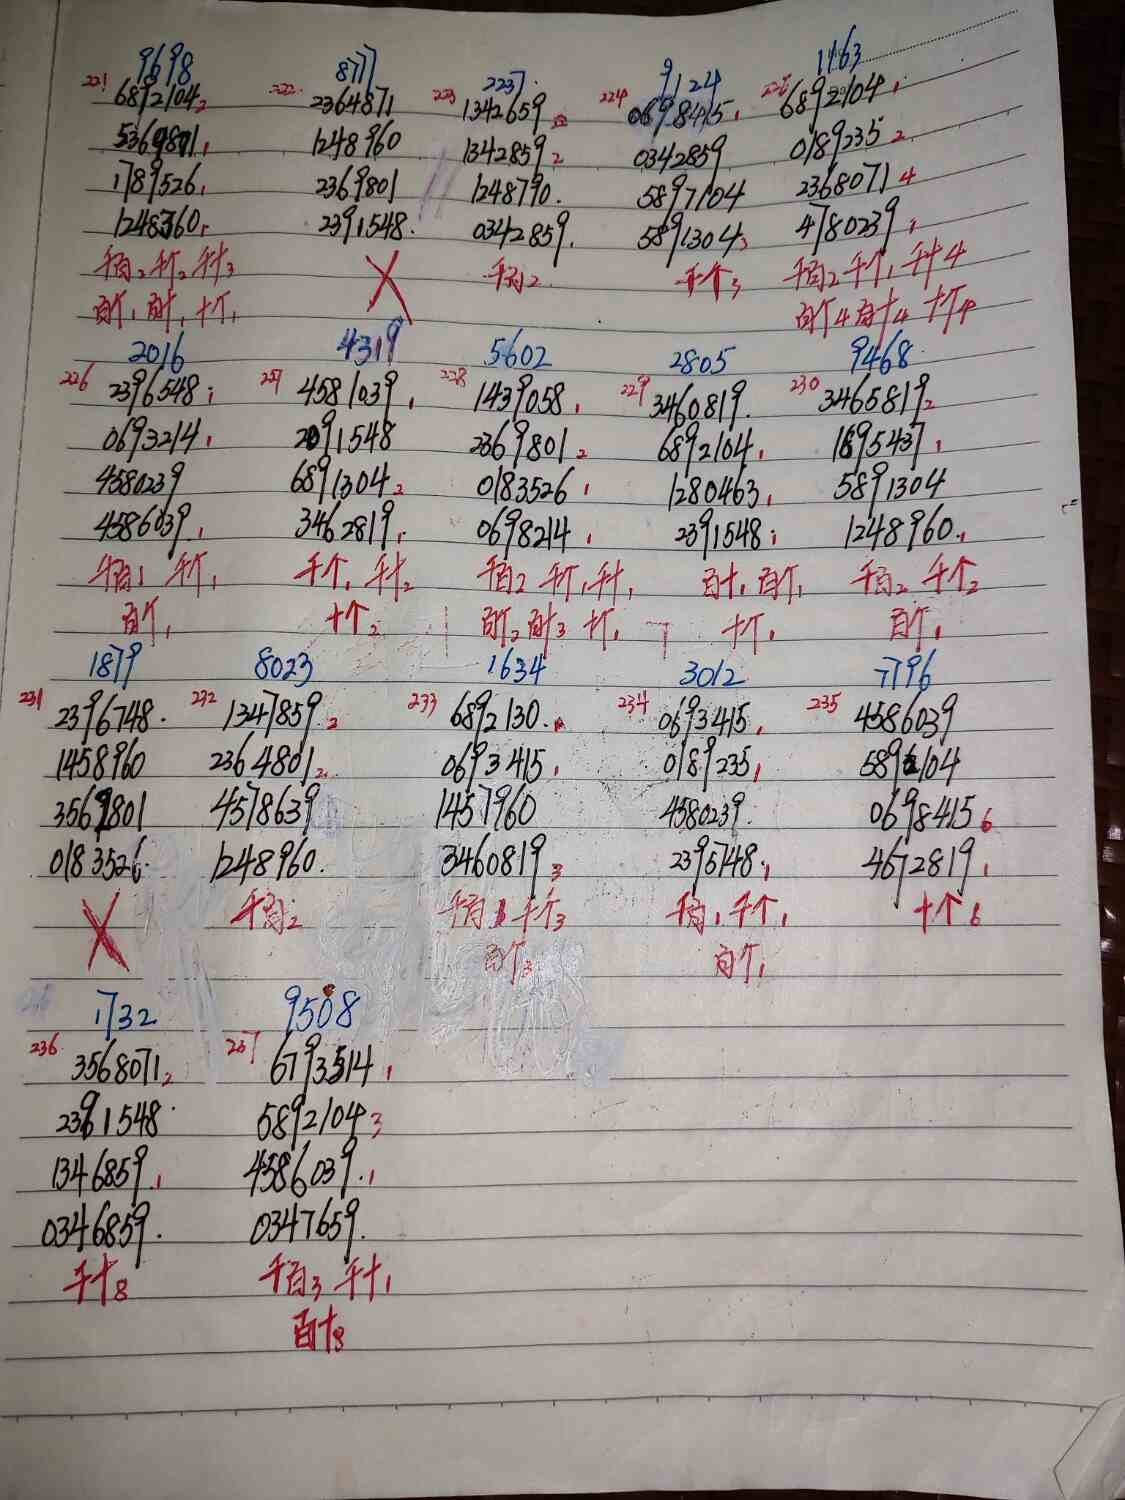 9698 8777 2237. 9124 1463
221 222 223 224 225
6892104 2 2364871 1342659 0698415 1 6892104 1
5369801 1 1248960 1342859 2 0342859 0189235 2
1789526 1 2369801 1248790. 5897104 2368071 4
1248360 1 2391548. 0342859. 5891304 3 4780239 1
千百2 千个2 千十3 X 千百2 千个3 千百2 千个1 千十4
百个1 百十1 十个1 百个4 百十4 十个4
2016 4319 5602 2805 9468
226 227 228 229 230
2396548 1 4581039 1 1439058 1 3460819. 3465819 2
0693214 1 2091548 2369801 2 6892104 1 1895437 1
4580239 6891304 2 0183526 1 1280463 1 5891304
4586039 1 3462819 1 0698214 1 2391548 1 1248960 1
千百1 千个1 千个1 千十2 千百2 千个1 千十1 百十1 百个1 千百2 千个2
百个1 十个2 百个2 百十3 十个1 十个1 百个1
1879 8023 1634 3012 7796
231 232 233 234 235
2396748. 1347859 2 6892130. 0693415 1 4586039
1458960 2364801 2 0693415 1 0189235 1 5892104
3569801 4578639 1457960 4580239. 0698415 6
0183526. 1248960. 3460819 3 2395748 1 4672819 1
X 千百2 千百1 千个3 千百1 千个1 十个6
百个3 百个1
1732 9508
236 237
3568071 2 6793514 1
2391548. 5892104 3
1346859 1 4586039. 1
0346859. 0347659.
千十8 千百3 千十1
百十8